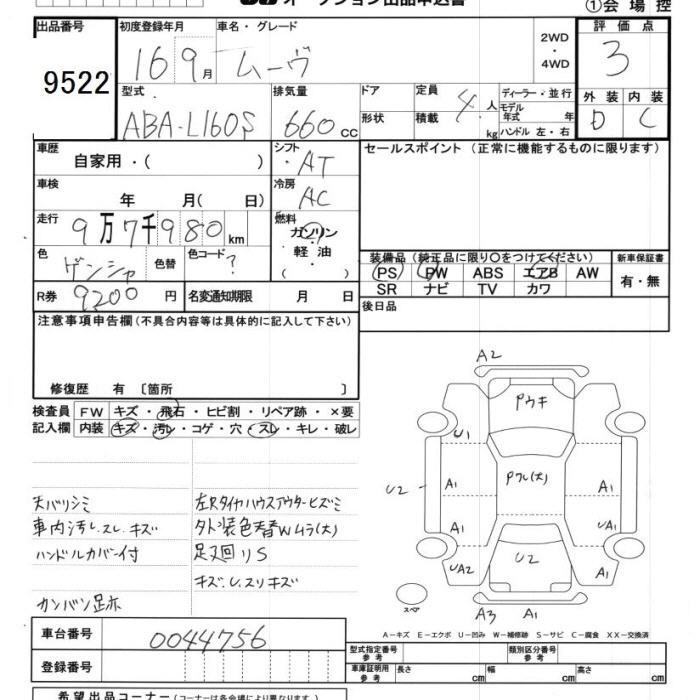 オークション出品申込書
①会場控
出品番号
9522
初度登録年月
16 9月
車名・グレード
ムーヴ
2WD
・
4WD
評価点
3
外装 内装
D C
型式
ABA-L160S
排気量
660 cc
ドア
形状
定員
4人
積載
kg
ディーラー・並行
モデル
年式 年
ハンドル 左・右
車歴
自家用・( )
シフト
・AT
セールスポイント(正常に機能するものに限ります)
車検
年 月( 日)
冷房
AC
走行
9万7千980km
燃料
ガソリン
・
軽油
・
( )
色
ゲンシャ
色替
色コード
?
装備品(純正品に限り○をつけてください)
PS PW ABS エアB AW
SR ナビ TV カワ
新車保証書
有・無
R券
9200円
名変通知期限 月 日
後日品
注意事項申告欄(不具合内容等は具体的に記入して下さい)
修復歴 有 〔箇所 〕
検査員
記入欄
FW キズ・飛石・ヒビ割・リペア跡・×要
内装 キズ・汚レ・コゲ・穴・スレ・キレ・破レ
天バリシミ
車内汚レ、スレ、キズ
ハンドルカバー付
カンバン足赤
左Rタイヤハウスアウターヒズミ
外装色褪Wムラ(大)
足叉回リS
キズ、U、スリキズ
A2
Pウキ
U1
Pフレ(大)
U2
A1
A1
A1
UA1
UA2
U2
A1
スペア
A3
A1
A-キズ E-エクボ U-凹み W-補修跡 S-サビ C-腐食 XX-交換済
車台番号
0044756
登録番号
型式指定番号
参考
類別区分番号
参考
車庫証明用
参考
長さ cm 幅 cm 高さ cm
希望出品コーナー(コーナーは各会場により異なります。)